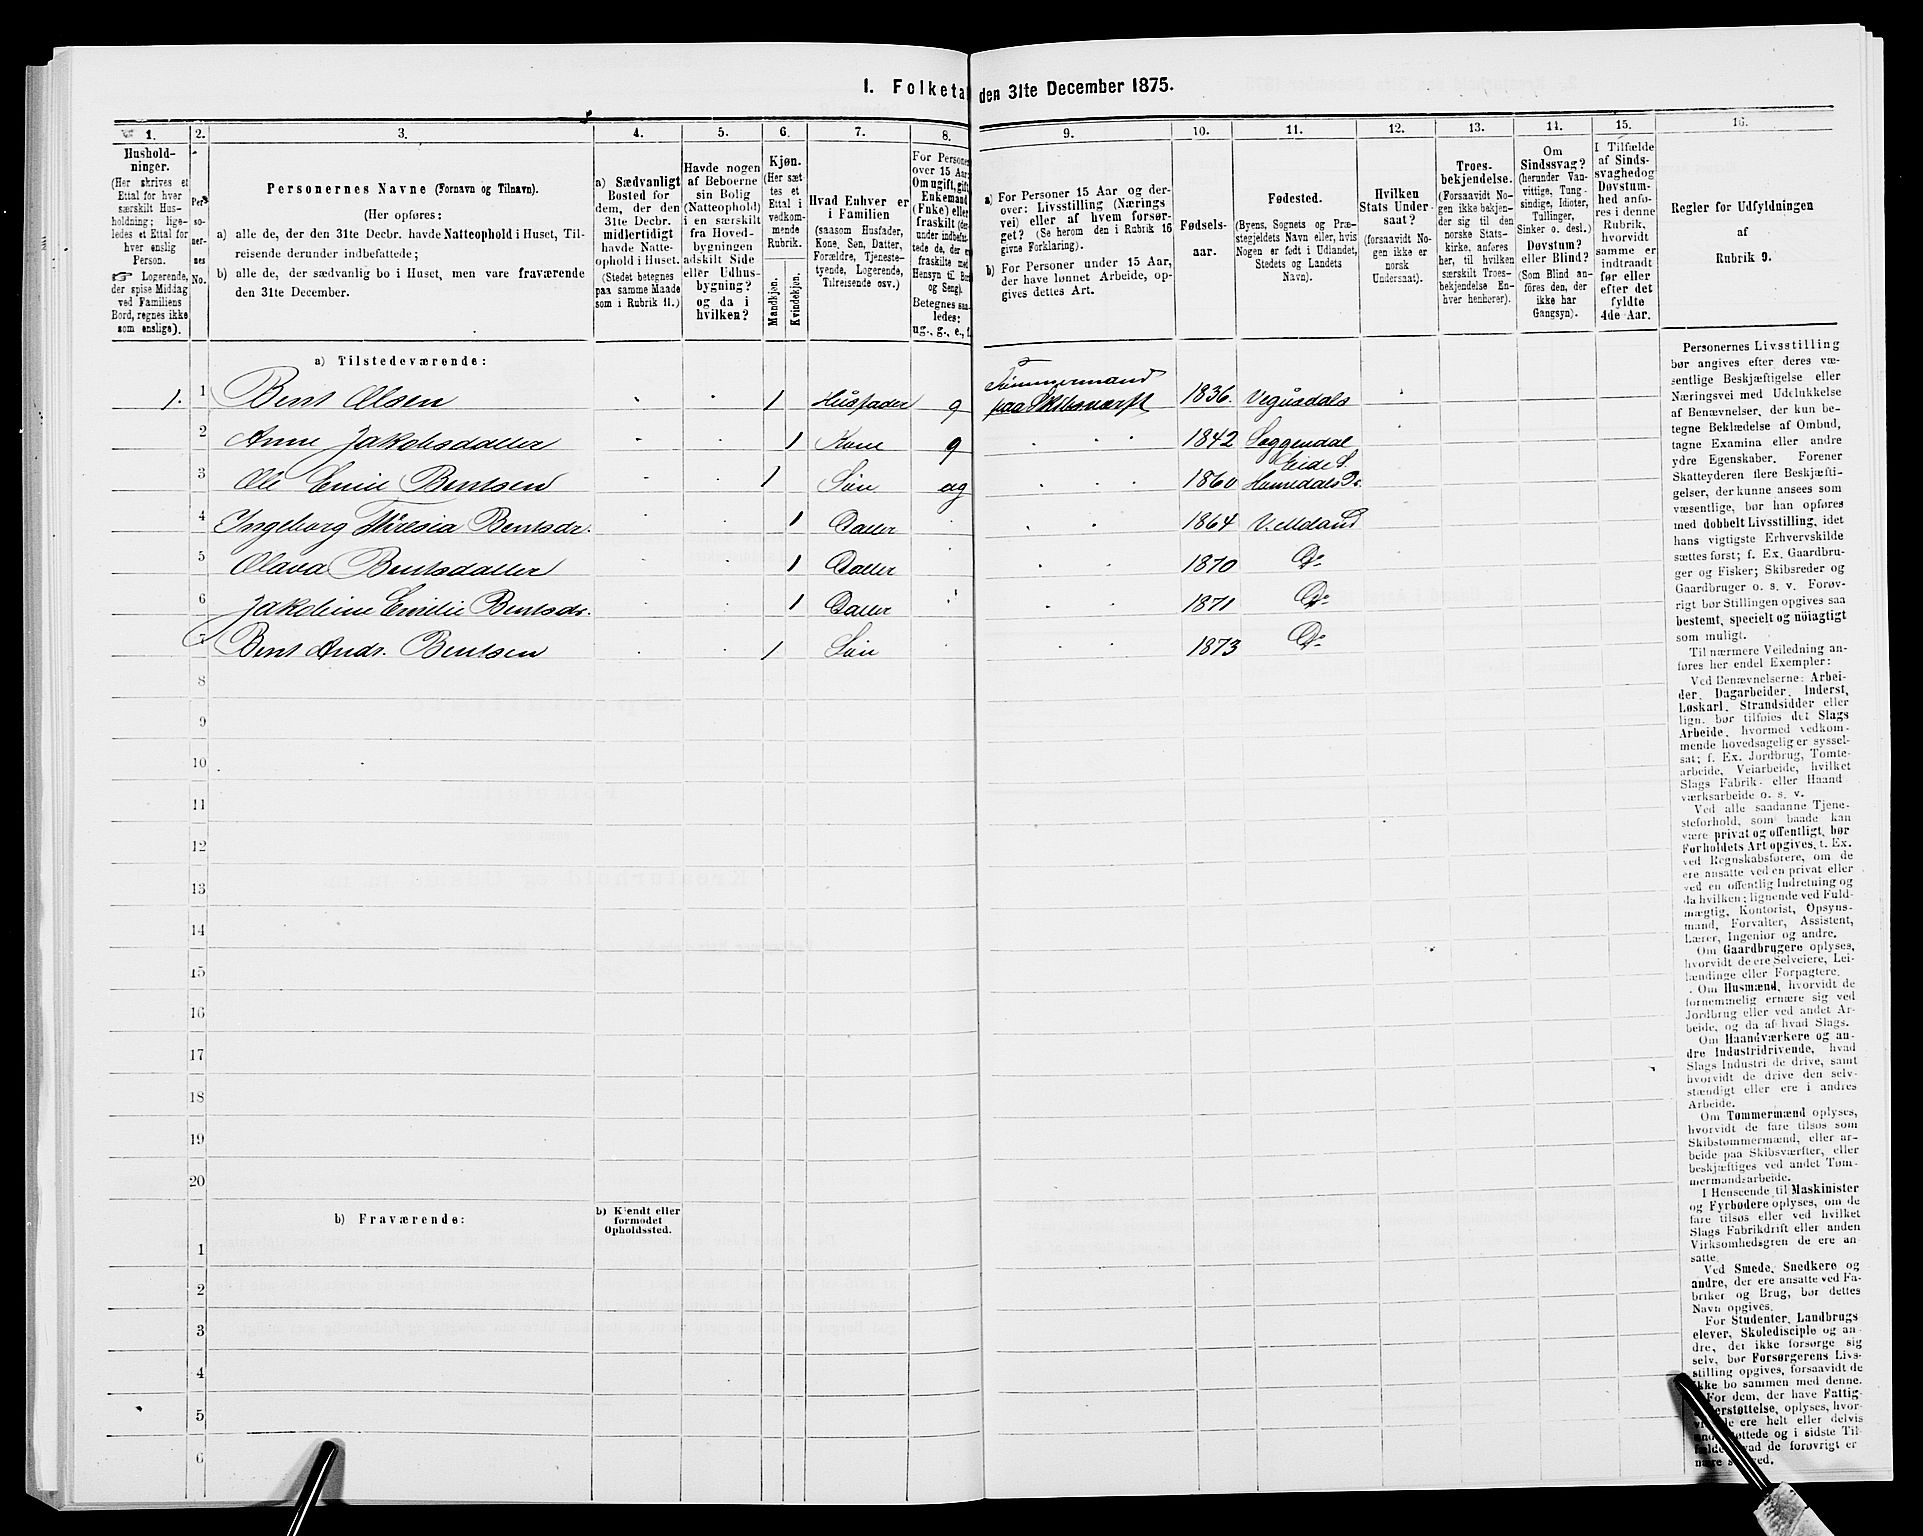 1. Folketal den 31te December 1875.
1. 2. 3. 4. 5. 6. 7. 8. 9. 10. 11. 12. 13. 14. 15. 16.
Hushold-
ninger.
(Her skrives et
Ettal for hver
særskilt Hus-
holdning; lige-
ledes et Ettal for
hver enslig
Person.
☞ Logerende,
der spise Middag
ved Familiens
Bord, regnes ikke
som enslige).
Per-
so-
ner-
nes
No.
Personernes Navne (Fornavn og Tilnavn).
(Her opføres:
a) alle de, der den 31te Decbr. havde Natteophold i Huset, Til-
reisende derunder indbefattede;
b) alle de, der sædvanlig bo i Huset, men vare fraværende
den 31te December.
a) Sædvanligt
Bosted for
dem, der den
31te Decbr.
midlertidigt
havde Natte-
ophold i Huset.
(Stedet betegnes
paa samme Maade
som i Rubrik 11.)
Havde nogen
af Beboerne
sin Bolig
(Natteophold)
i en særskilt
fra Hoved-
bygningen
adskilt Side
eller Udhus-
bygning?
og da i
hvilken?
Kjøn.
(Her sæt
tes et
Ettal i
vedkom-
mende
Rubrik.
Mandkjøn.
Kvindekjøn.
Hvad Enhver er
i Familien
(saasom Husfader,
Kone, Søn, Datter,
Forældre, Tjeneste-
tyende, Logerende,
Tilreisende osv.)
For Personer
over 15 Aar:
Om ugift, gift,
Enkemand
(Enke) eller
fraskilt (der-
under indbefat-
tede de, der ere
fraskilte med
Hensyn til Bord
og Seng).
Betegnes saa-
ledes:
ug., g., e., f.
a) For Personer 15 Aar og der-
over: Livsstilling (Nærings
vei) eller af hvem forsør-
get? (Se herom den i Rubrik 16
givne Forklaring).
b) For Personer under 15 Aar,
der have lønnet Arbeide, op-
gives dettes Art.
Fødsels-
aar.
Fødested.
(Byens, Sognets og Præ-
stegjeldets Navn eller, hvis
Nogen er født i Udlandet,
Stedets og Landets
Navn).
Hvilken
Stats Under-
saat?
(forsaavidt No-
gen ikke er
norsk
Undersaat).
Troes-
bekjendelse.
(Forsaavidt No-
gen ikke bekjen-
der sig til den
norske Stats-
kirke, anføres
her, til hvilken
særskilt Troes-
bekjendelse En-
hver henhører).
Om
Sindssvag?
(herunder Van-
vittige, Tung-
sindige, Idioter,
Tullinger,
Sinker o. desl.)
Døvstum?
eller Blind?
(Som Blind an-
føres den, der
ikke har
Gangsyn).
I Tilfælde
af Sinds-
svaghed og
Døvstum-
hed anfø-
res i denne
Rubrik,
hvorvidt
samme er
indtraadt
før eller
efter det
fyldte
4de Aar.
Regler for Udfyldningen
af
Rubrik 9.
a) Tilstedeværende:
1. 1 Bent Olsen 1 Husfader g Tømmermand
paa Skibsværft 1836. Vegusdals
2 Anne Jakobsdatter 1 Kone g 1842 Soggendal
3 Ole Emil Bentsen 1 Søn ug 1860 Eide S.
Homedals Pr.
4 Ingeborg Thresia Bentsdr. 1 Datter 1864 V. Moland
5 Olava Bentsdatter 1 Datter 1870 Do
6 Jakobine Emilie Bentsdr. 1 Datter 1871 Do
7 Bent Andr. Bentsen 1 Søn 1873 Do
8
9
10
11
12
13
14
15
16
17
18
19
20
b) Fraværende:
b) Kjendt eller
formodet
Opholdssted.
1
2
3
4
5
6
Personernes Livsstilling
bør angives efter deres væ-
sentlige Beskjæftigelse eller
Næringsvei med Udelukkelse
af Benævnelser, der kun be-
tegne Beklædelse af Ombud,
tagne Examina eller andre
ydre Egenskaber. Forener
Skatteyderen flere Beskjæfti-
gelser, der kunne ansees som
væsentlige, bør han opføres
med dobbelt Livsstilling, idet
hans vigtigste Erhvervskilde
sættes først; f. Ex. Gaardbru-
ger og Fisker; Skibsreder og
Gaardbruger o. s. v. Forøv-
rigt bør Stillingen opgives saa
bestemt, specielt og nöiagtigt
som muligt.
Til nærmere Veiledning an-
føres her endel Exempler:
Ved Benævnelserne: Arbei-
der, Dagarbeider, Inderst,
Løskarl, Strandsidder eller
lign. bør tilføies det Slags
Arbeide, hvormed vedkom-
mende hovedsagelig er syssel-
sat; f. Ex. Jordbrug, Tomte-
arbeide, Veiarbeide, hvilket
Slags Fabrik- eller Haand
værksarbeide o. s. v.
Ved alle saadanne Tjene-
steforhold, som baade kan
være privat og offentligt, bør
Forholdets Art opgives, t. Ex.
ved Regnskabsførere, om de
ere ansatte ved en privat eller
ved en offentlig Indretning og
da hvilken; lignende ved Fuld-
mægtig, Kontorist, Opsyns-
mand, Forvalter, Assistent,
Lærer, Ingeniør og andre.
Om Gaardbrugere oplyses,
hvorvidt de ere Selveiere, Lei-
lændinge eller Forpagtere.
Om Husmænd, hvorvidt de
fornemmelig ernære sig ved
Jordbrug eller ved andet Ar-
beide, og da af hvad Slags.
Om Haandværkere og an-
dre Industridrivende, hvad
Slags Industri de drive, samt
hvorvidt de drive den selv-
stændigt eller ere i andres
Arbeide.
Om Tømmermænd oplyses,
hvorvidt de fare tilsøs som
Skibstømmermænd, eller ar-
beide paa Skibsværfter, eller
beskjæftiges ved andet Tøm-
mermandsarbeide.
I Henseende til Maskinister
og Fyrbødere oplyses, om de
fare tilsøs eller ved hvilket
Slags Fabrikdrift eller anden
Virksomhedsgren de ere an-
satte.
Ved Smede, Snedkere og
andre, der ere ansatte ved Fa-
briker og Brug, bør dettes
Navn opgives.
For Studenter, Landbrugs
elever, Skoledisciple og an-
dre, der ikke forsørge sig
selv, bør Forsørgerens Livs-
stilling opgives, forsaavidt de
ikke bo sammen med denne.
For dem, der have Fattig-
understøttelse, oplyses, hvor-
ere helt eller delvis
og i sidste Til-
de forøvrigt er